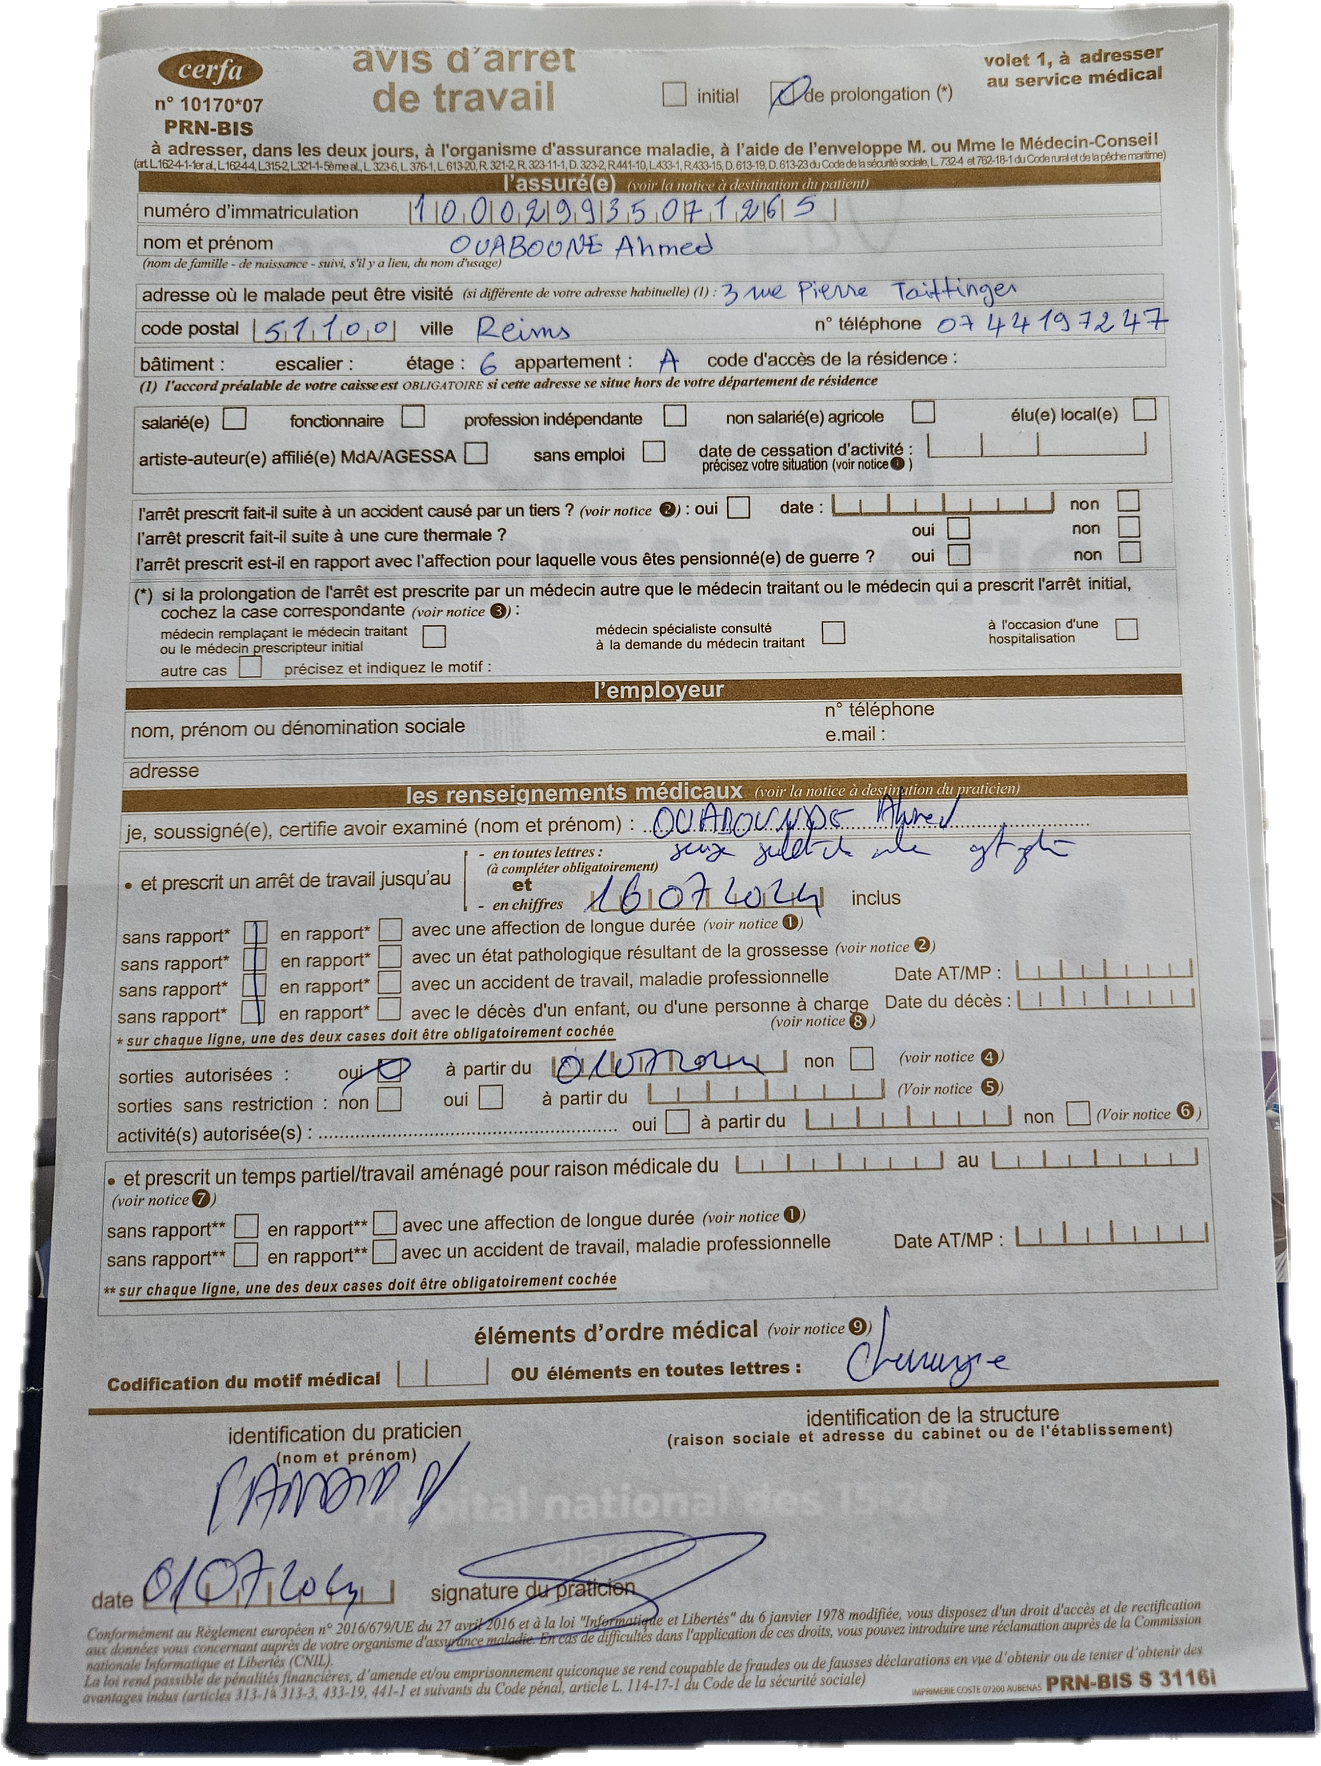 cerfa
n° 10170*07
PRN-BIS
avis d'arret
de travail
initial de prolongation (*)
volet 1, à adresser
au service médical
à adresser, dans les deux jours, à l'organisme d'assurance maladie, à l'aide de l'enveloppe M. ou Mme le Médecin-Conseil
(art. L.162-4-1-1er al., L.162-4-4, L.315-2, L.321-1-5ème al., L. 323-6, L. 376-1, L. 613-20, R. 321-2, R. 323-11-1, D. 323-2, R.441-10, L.433-1, R.433-15, D. 613-19, D. 613-23 du Code de la sécurité sociale, L. 732-4 et 762-18-1 du Code rural et de la pêche maritime)
l'assuré(e) (voir la notice à destination du patient)
numéro d'immatriculation 100029935071265
nom et prénom OUABOUNE Ahmed
(nom de famille - de naissance - suivi, s'il y a lieu, du nom d'usage)
adresse où le malade peut être visité (si différente de votre adresse habituelle) (1) : 3 rue Pierre Taittinger
code postal 51100 ville Reims n° téléphone 0744197247
bâtiment : escalier : étage : 6 appartement : A code d'accès de la résidence :
(1) l'accord préalable de votre caisse est OBLIGATOIRE si cette adresse se situe hors de votre département de résidence
salarié(e) fonctionnaire profession indépendante non salarié(e) agricole élu(e) local(e)
artiste-auteur(e) affilié(e) MdA/AGESSA sans emploi date de cessation d'activité :
précisez votre situation (voir notice 1)
l'arrêt prescrit fait-il suite à un accident causé par un tiers ? (voir notice 2) : oui date : non
l'arrêt prescrit fait-il suite à une cure thermale ? oui non
l'arrêt prescrit est-il en rapport avec l'affection pour laquelle vous êtes pensionné(e) de guerre ? oui non
(*) si la prolongation de l'arrêt est prescrite par un médecin autre que le médecin traitant ou le médecin qui a prescrit l'arrêt initial,
cochez la case correspondante (voir notice 3) :
médecin remplaçant le médecin traitant
ou le médecin prescripteur initial
médecin spécialiste consulté
à la demande du médecin traitant
à l'occasion d'une
hospitalisation
autre cas précisez et indiquez le motif :
l'employeur
nom, prénom ou dénomination sociale
n° téléphone
e.mail :
adresse
les renseignements médicaux (voir la notice à destination du praticien)
je, soussigné(e), certifie avoir examiné (nom et prénom) : OUABOUNDE Ahmed
• et prescrit un arrêt de travail jusqu'au
- en toutes lettres : seize juillet
(à compléter obligatoirement)
et
- en chiffres 16072024 inclus
sans rapport* en rapport* avec une affection de longue durée (voir notice 1)
sans rapport* en rapport* avec un état pathologique résultant de la grossesse (voir notice 2)
sans rapport* en rapport* avec un accident de travail, maladie professionnelle Date AT/MP :
sans rapport* en rapport* avec le décès d'un enfant, ou d'une personne à charge Date du décès :
(voir notice 8)
* sur chaque ligne, une des deux cases doit être obligatoirement cochée
sorties autorisées : oui à partir du 01072024 non (voir notice 4)
sorties sans restriction : non oui à partir du (Voir notice 5)
activité(s) autorisée(s) : oui à partir du non (Voir notice 6)
• et prescrit un temps partiel/travail aménagé pour raison médicale du au
(voir notice 7)
sans rapport** en rapport** avec une affection de longue durée (voir notice 1)
sans rapport** en rapport** avec un accident de travail, maladie professionnelle Date AT/MP :
** sur chaque ligne, une des deux cases doit être obligatoirement cochée
éléments d'ordre médical (voir notice 9)
Codification du motif médical OU éléments en toutes lettres : Chirurgie
identification du praticien
(nom et prénom)
identification de la structure
(raison sociale et adresse du cabinet ou de l'établissement)
Hôpital national des 15-20
date 01072024 signature du praticien
Conformément au Règlement européen n° 2016/679/UE du 27 avril 2016 et à la loi "Informatique et Libertés" du 6 janvier 1978 modifiée, vous disposez d'un droit d'accès et de rectification
aux données vous concernant auprès de votre organisme d'assurance maladie. En cas de difficultés dans l'application de ces droits, vous pouvez introduire une réclamation auprès de la Commission
nationale Informatique et Libertés (CNIL).
La loi rend passible de pénalités financières, d'amende et/ou emprisonnement quiconque se rend coupable de fraudes ou de fausses déclarations en vue d'obtenir ou de tenter d'obtenir des
avantages indus (articles 313-1 à 313-3, 433-19, 441-1 et suivants du Code pénal, article L. 114-17-1 du Code de la sécurité sociale)
IMPRIMERIE COSTE 07200 AUBENAS PRN-BIS S 3116i